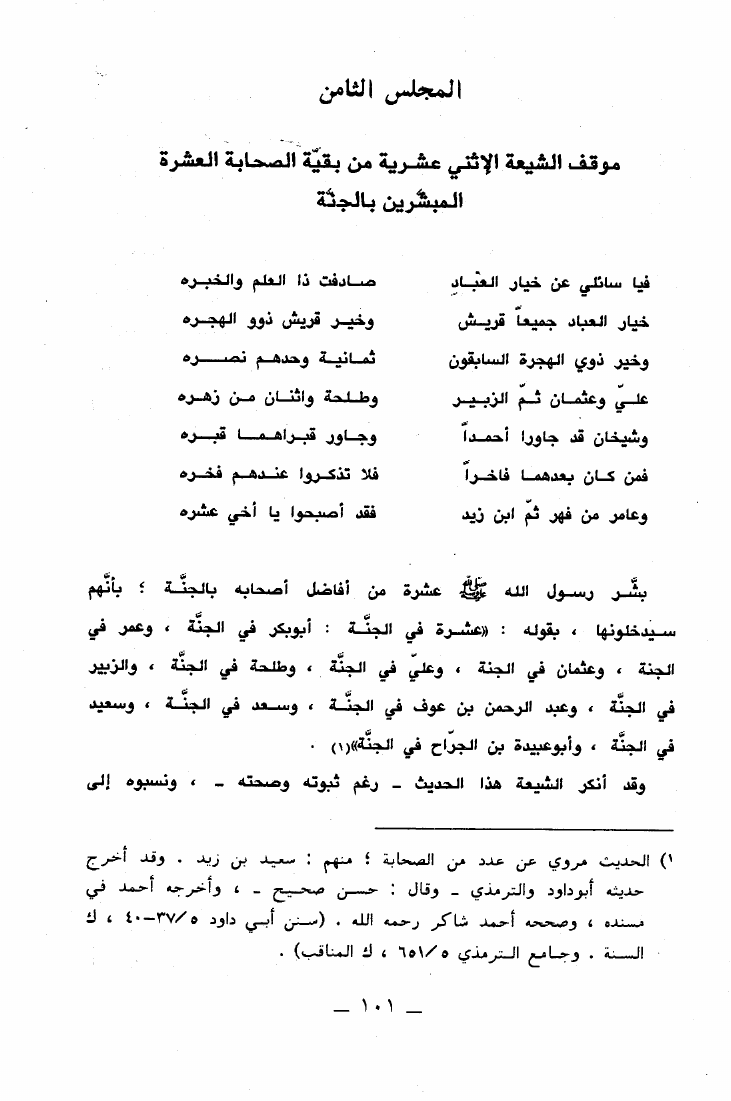 المجلس الثامن
موقف الشيعة الإثني عشرية من بقيّة الصحابة العشرة
المبشَّرين بالجنَّة
فيا سائلي عن خيار العبـاد صـادفت ذا العلم والخبـره
خيار العباد جميعاً قريـش وخيـر قريش ذوو الهجـره
وخير ذوي الهجرة السابقون ثمـانيـة وحدهـم نصـــره
علـيّ وعثمـان ثـمّ الزبيـر وطلـحة واثنـان مـن زهـره
وشيخان قد جاورا أحمـداً وجـاور قبـراهـمـا قبـره
فمن كـان بعدهمـا فاخـراً فلا تذكـروا عنـدهـم فخـره
وعامر من فهر ثمّ ابن زيد فقد أصبحوا يا أخي عشره
بشَّـر رسـول الله ﷺ عشرة من أفاضل أصحابه بالجنَّـة ؛ بأنَّهم
سيدخلونها ، بقوله : «عشـرة في الجنَّـة : أبوبكر في الجنَّة ، وعمر في
الجنة ، وعثمان في الجنة ، وعليّ في الجنَّة ، وطلحة في الجنَّة ، والزبير
في الجنَّة ، وعبد الرحمن بن عوف في الجنَّـة ، وسـعد في الجنَّـة ، وسعيد
في الجنَّة ، وأبوعبيدة بن الجرّاح في الجنَّة»(١) .
وقد أنكر الشيعة هذا الحديث - رغم ثبوته وصحته - ، ونسبوه إلى
١) الحديث مروي عن عدد من الصحابة ؛ منهم : سعيد بن زيد . وقد أخرج
حديثه أبوداود والترمذي - وقال : حسن صحيح - ، وأخرجه أحمد في
مسنده ، وصححه أحمد شاكر رحمه الله . (سنن أبي داود ٥/٣٧-٤٠ ، ك
السنة . وجامع الترمذي ٥/٦٥١ ، ك المناقب) .
- ١٠١ -